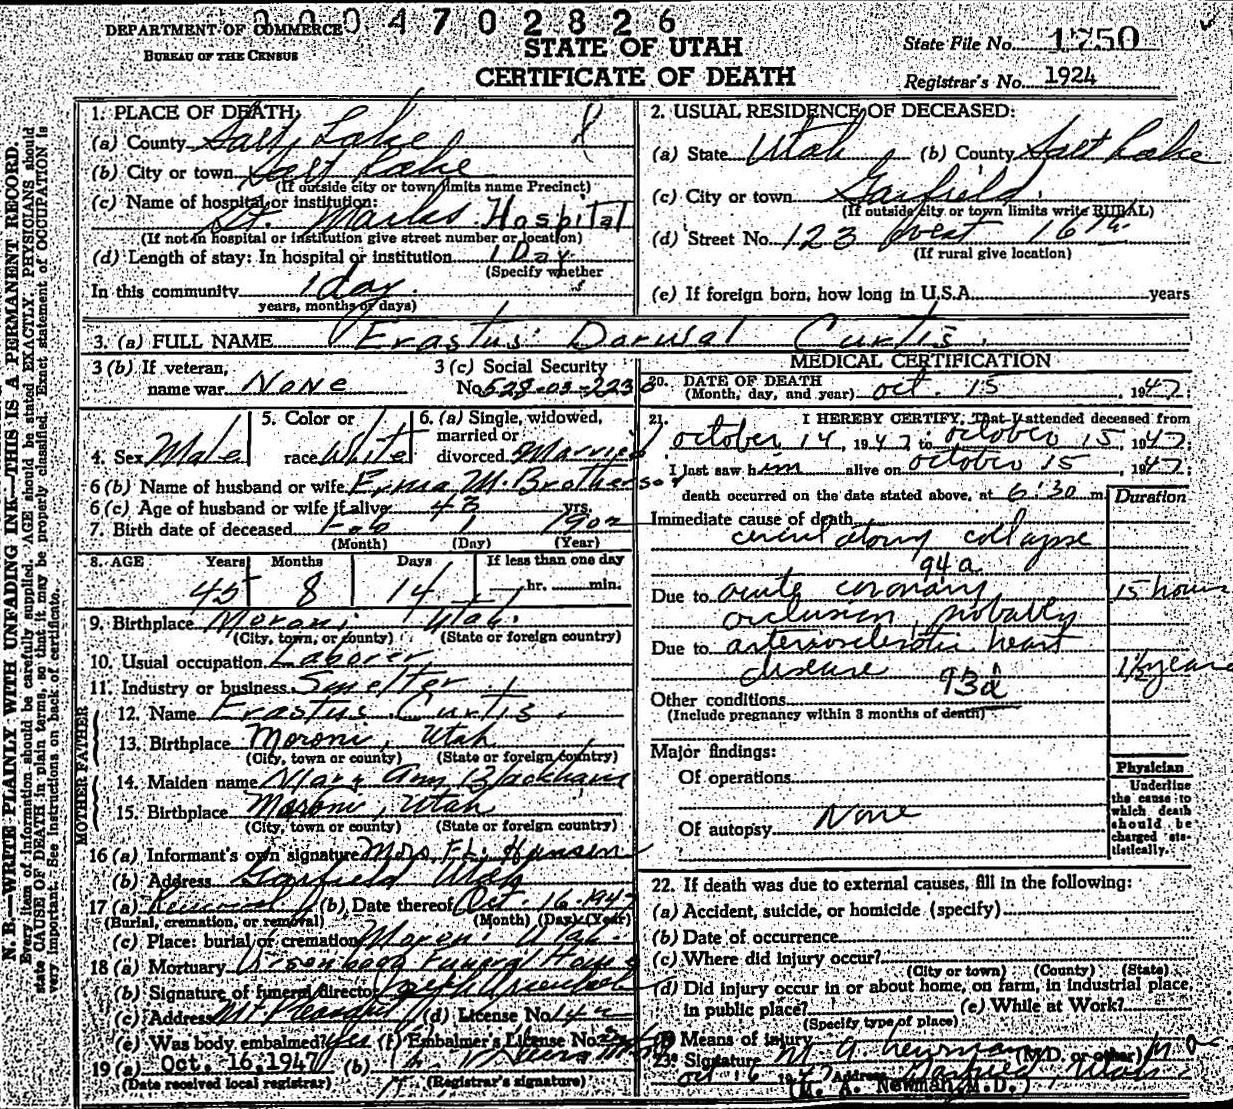 0004702826
DEPARTMENT OF COMMERCE
BUREAU OF THE CENSUS
STATE OF UTAH
CERTIFICATE OF DEATH
State File No. 1750
Registrar's No. 1924
N. B.—WRITE PLAINLY WITH UNFADING INK—THIS IS A PERMANENT RECORD.
Every item of information should be carefully supplied. AGE should be stated EXACTLY. PHYSICIANS should
state CAUSE OF DEATH in plain terms, so that it may be properly classified. Exact statement of OCCUPATION is
very important. See instructions on back of certificate.
1. PLACE OF DEATH:
(a) County Salt Lake
(b) City or town Salt Lake
(If outside city or town limits name Precinct)
(c) Name of hospital or institution:
St. Marks Hospital
(If not in hospital or institution give street number or location)
(d) Length of stay: In hospital or institution 1 Day
(Specify whether
In this community 1 day
years, months or days)
2. USUAL RESIDENCE OF DECEASED:
(a) State Utah (b) County Salt Lake
(c) City or town Garfield.
(If outside city or town limits write RURAL)
(d) Street No. 123 West 16th
(If rural give location)
(e) If foreign born, how long in U.S.A. years
3. (a) FULL NAME Erastus Darwal Curtis.
3 (b) If veteran,
name war None
3 (c) Social Security
No. 528-03-2238
4. Sex Male
5. Color or
race White
6. (a) Single, widowed,
married or
divorced Married
6 (b) Name of husband or wife Erma M. Brotherson
6 (c) Age of husband or wife if alive 43 yrs.
7. Birth date of deceased Feb 1 1902
(Month) (Day) (Year)
8. AGE Years Months Days If less than one day
45 8 14 hr. min.
9. Birthplace Moroni Utah.
(City, town, or county) (State or foreign country)
10. Usual occupation Laborer
11. Industry or business Smelter
FATHER
12. Name Erastus Curtis.
13. Birthplace Moroni, Utah
(City, town or county) (State or foreign country)
MOTHER
14. Maiden name Mary Ann Blackham
15. Birthplace Moroni, Utah
(City, town or county) (State or foreign country)
16 (a) Informant's own signature Mrs. F.L. Hansen
(b) Address Garfield Utah
17 (a) Removal (b) Date thereof Oct. 16. 1947
(Burial, cremation, or removal) (Month) (Day) (Year)
(c) Place: burial or cremation Moroni Utah.
18 (a) Mortuary Ursenbach Funeral Home
(b) Signature of funeral director
(c) Address Mt. Pleasant (d) License No.
(e) Was body embalmed? Yes (f) Embalmer's License No.
19 (a) Oct. 16, 1947 (b)
(Date received local registrar) (Registrar's signature)
MEDICAL CERTIFICATION
20. DATE OF DEATH
(Month, day, and year) Oct. 15 1947.
21. I HEREBY CERTIFY, That I attended deceased from
October 14, 1947 to October 15, 1947
I last saw him alive on October 15, 1947.
death occurred on the date stated above, at 6:30 m.
Duration
Immediate cause of death
circulatory collapse
94a
Due to acute coronary 15 hours
occlusion, probably
Due to arteriosclerotic heart
disease 93d 1½ years
Other conditions
(Include pregnancy within 3 months of death)
Major findings:
Of operations
Of autopsy None
Physician
Underline
the cause to
which death
should be
charged sta-
tistically.
22. If death was due to external causes, fill in the following:
(a) Accident, suicide, or homicide (specify)
(b) Date of occurrence
(c) Where did injury occur?
(City or town) (County) (State)
(d) Did injury occur in or about home, on farm, in industrial place,
in public place? (e) While at Work?
(Specify type of place)
Means of injury
23. Signature M. A. Newman (M.D. or other) M.D.
Oct 16 1947 Address Garfield Utah
(M. A. Newman, M.D.)